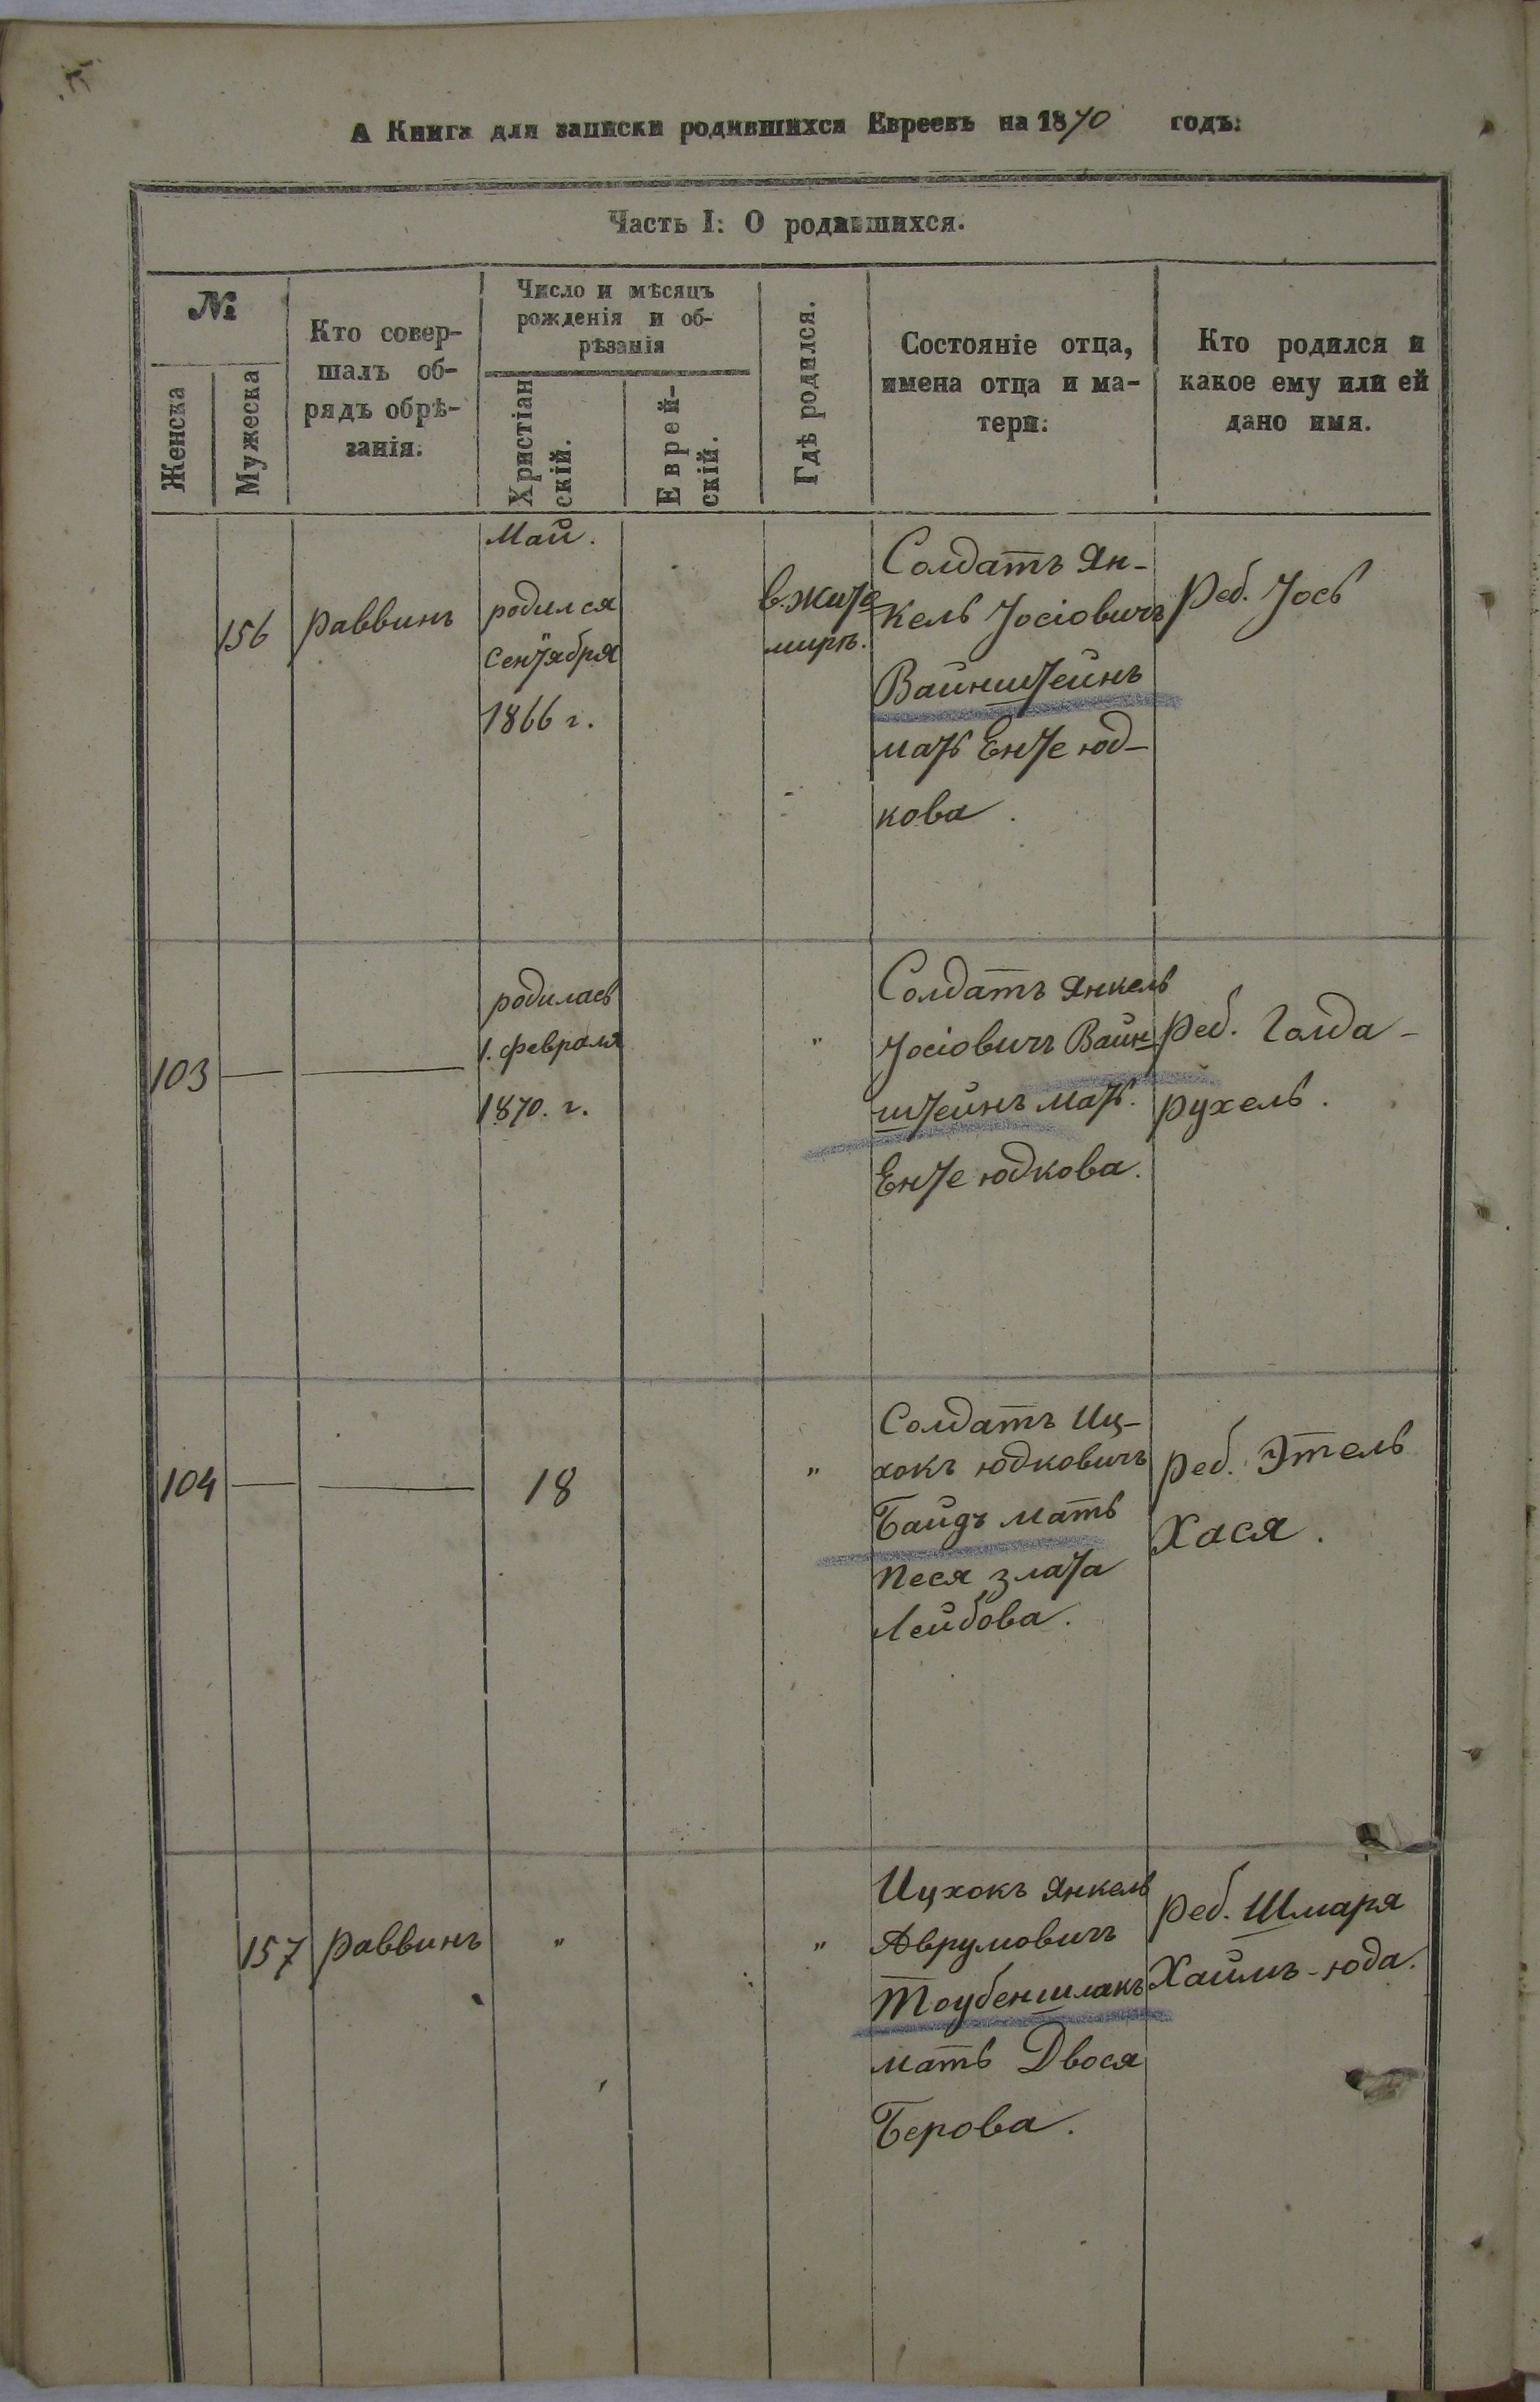 А Книга для записки родившихся Евреевъ на 1870 годъ:
Часть I: О родившихся.
№
Женска
Мужеска
Кто совер-
шалъ об-
рядъ обрѣ-
занія.
Число и мѣсяцъ
рожденія и об-
рѣзанія
Христіан
скій.
Еврей-
скій.
Гдѣ родился.
Состояніе отца,
имена отца и ма-
тери:
Кто родился и
какое ему или ей
дано имя.
Май.
156
раввинъ
родился
Сентября
1866 г.
в. Жито
миръ.
Солдатъ Ян-
кель Іосіовичъ
Вайнштейнъ
мать Енте юд-
кова.
реб. Іось
103
родилась
1. февраля
1870. г.
"
Солдатъ Янкель
Іосіовичъ Вайн
штейнъ мать.
Енте юдкова.
реб. Голда-
рухель.
104
18
"
Солдатъ Иц-
хокъ юдковичъ
Байдъ мать
песя злата
Лейбова.
реб. Этель
Хася.
157
раввинъ
"
"
Ицхокъ Янкель
Аврумовичъ
Тоубеншлакъ
мать Двося
Берова.
реб. Шмаря
Хаимъ-юда.